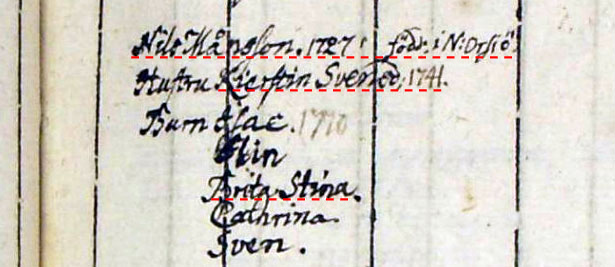 Nils Månsson. 1727 född. i N: Orsiö
Hustru Kierstin Svensd. 1741.
Barn Isac. 1770
Elin
Brita Stina.
Cathrina.
Sven.